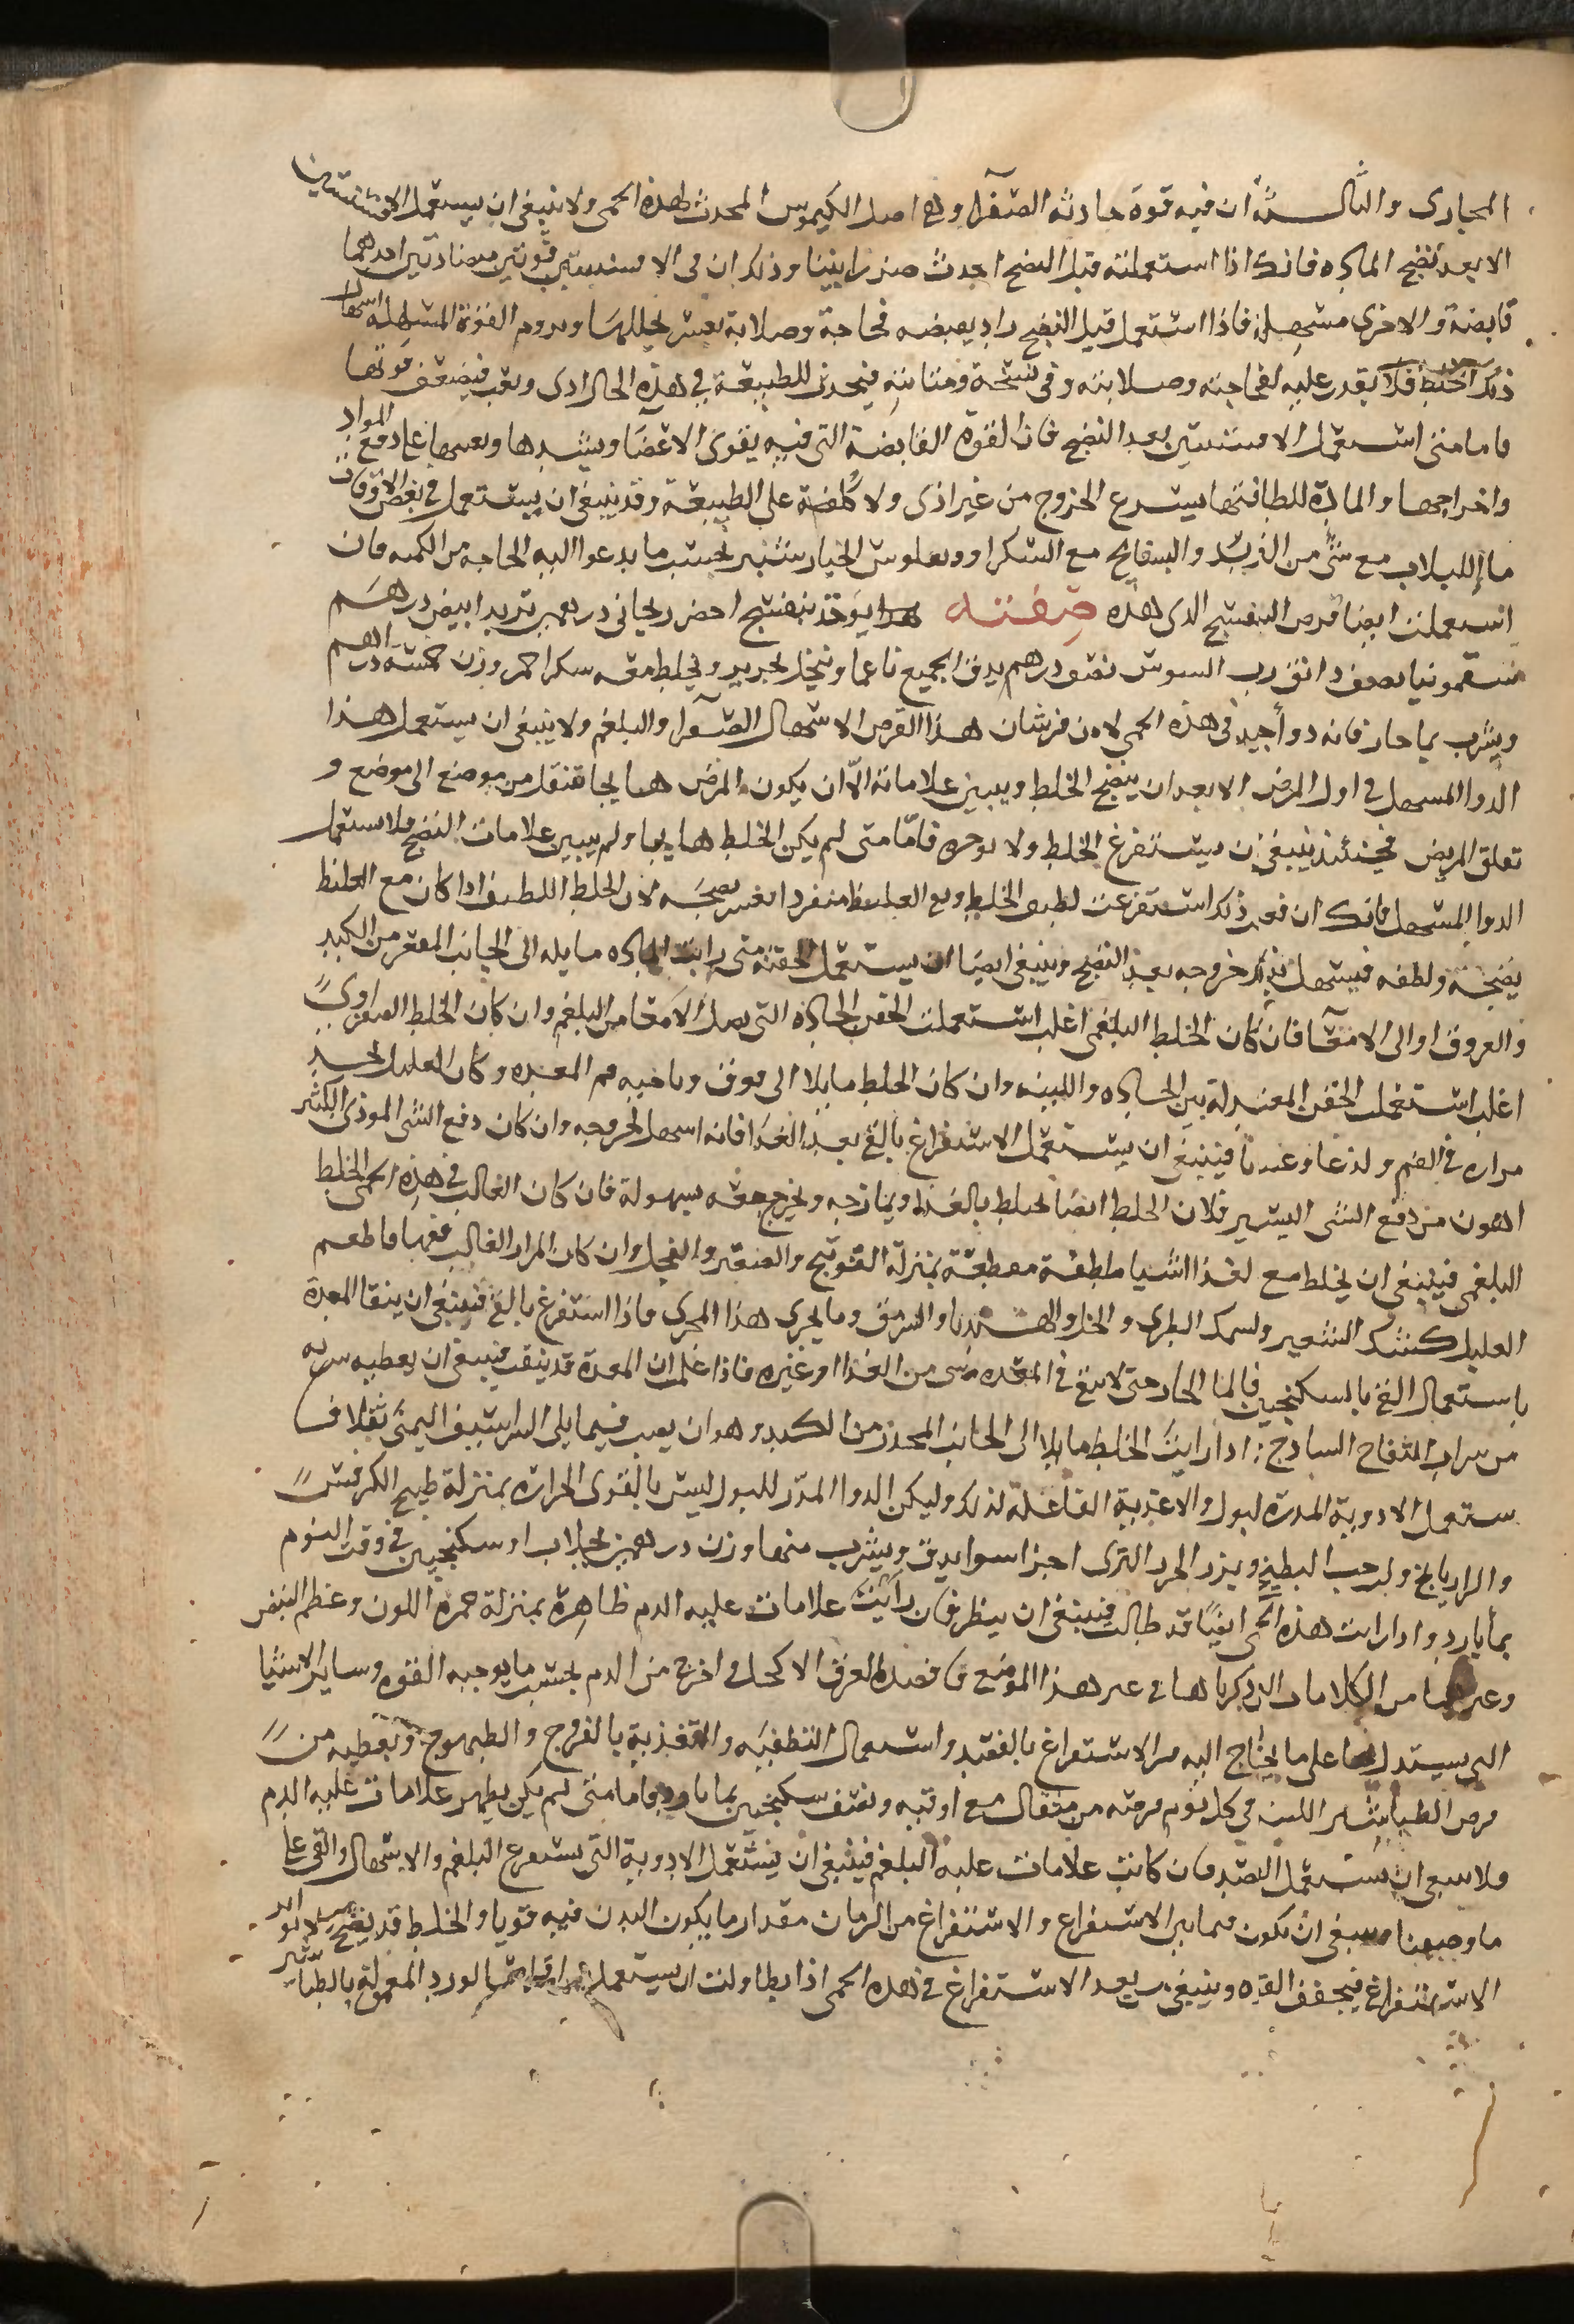 المجارى والثالثة ان فيه قوة حادثه الصفرا وهى اصل الكيموس المحدث لهذه الحمى ولا ينبغى ان يستعمل الافسنتين
الا بعد نضج الماده فانك اذا استعملته قبل النضج احدث ضررا بينا وذلك ان فى الافسنتين قوتين متضادتين احدهما
قابضة والاخرى مسهلة فاذا استعمل قبل النضج زاد بقبضه فجاجة وصلابة يعسر تحللها ويروم القوة المسهلة اسهال
ذلك الخلط فلا يقدر عليه لفجاجته وصلابته وفى ومتانته فيحدث للطبيعة فى هذه الحال اذى وتعب فيضعف قوتها
فاما متى استعمل الافسنتين بعد النضج فان القوة القابضة التى فيه يقوى الاعضا ويشدها ويعينها على دفع المواد
واخراجها والمادة للطافتها يسرع الخروج من غير اذى ولا كلفة على الطبيعة وقد ينبغى ان يستعمل فى بعض الاوقات
ما اللبلاب مع شئ من التربد والبسفايج مع السكر او وفلوس الخيار شنبر بحسب ما يدعوا اليه الحاجه من الكميه فان
استعملت ايضا قرص البنفسج الذى هذه صفته يؤخذ بنفسج اخضر ريحانى درهمين تربد ابيض درهم
سقمونيا نصف دانق رب السوس نصف درهم يدق الجميع ناعما وينخل بحرير ويخلط معه سكر احمر وزن خمسة دراهم
ويشرب بما حار فانه دوا جيد فى هذه الحمى لان من شان هذا القرص الاسهال الصفرا والبلغم ولا ينبغى ان يستعمل هذا
الدوا المسهل فى اول المرض الا بعد ان ينضج الخلط ويبين علاماته الا ان يكون المرض هايجا يتنقل من موضع الى موضع و
تعلق المريض فحينئذ ينبغى ان يستفرغ الخلط ولا يوخره فاما متى لم يكن الخلط هايجا ولم يبين علامات النضج فلا تستعمل
الدوا المسهل فانك ان فعلت ذلك استفرغت لطيف الخلط وبقى الغليظ منفردا فعسر نضجه لان الخلط اللطيف اذا كان مع الغليظ
ينضجه ولطفه فيسهل بذلك خروجه بعد النضج وينبغى ايضا ان يستعمل الحقنه متى رايت الماده مايله الى الجانب المقعر من الكبد
والعروق او الى الامعا فان كان الخلط البلغمى اغلب استعملت الحقن الحاده التى يصل الامعا من البلغم وان كان الخلط الصفراوى
اغلب استعملت الحقن المعتدلة بين الحاده واللينه وان كان الخلط مايلا الى فوق وناحيه فم المعده وكان العليل يجد
مراره فى الفم ولذعا وغثيانا فينبغى ان يستعمل الاستفراغ بالقئ بعد الغذا فانه اسهل لخروجه وان كان دفع الشى الموذى الكثير
اهون من دفع الشى اليسير فلان الخلط ايضا يختلط بالغذا ويمازجه ويخرج معه بسهولة فان كان الغالب فى هذه الحمى الخلط
البلغمى فينبغى ان يخلط مع الغذا اشيا ملطفة مقطعة بمنزلة الفوتنج والصعتر والفجل وان كان المرار الغالب فيها فاطعم
العليل كشك الشعير والسمك الطرى والخل والهندبا والسرمق وما يجرى هذا المجرى فاذا استفرغ بالقئ فينبغى ان ينقا المعدة
باستعمال القئ بالسكنجبين فالما الحار حتى لا يبقى فى المعده شى من الغذا او غيره فاذا علم ان المعدة قد نقيت فينبغى ان يعطيه شربه
من شراب التفاح الساذج اذا رايت الخلط مايلا الى الجانب المحدب من الكبد وهو ان يصب فيما يلى الشراسيف اليمنى ثقلا ف
ستعمل الادوية المدرة لبول والاغذية الفاعلة لذلك وليكن الدوا المدر للبول ليس بالقوى الحراره بمنزلة طبيخ الكرفس
والرازيانج ولب حب البطيخ وبزر الجزر البرى اجزا سوا يدق ويشرب منها وزن درهمين بجلاب او سكنجبين فى وقت النوم
بما بارد واذا رايت هذه الحمى ايضا قد طالت فينبغى ان ينظر فان رايت علامات غلبه الدم ظاهرة بمنزلة حمرة اللون وعظم النبض
وغيرها من العلامات التى ذكرناها فى غير هذا الموضع فافصده العرق الاكحل واخرج من الدم بحسب ما يوجبه القوه وساير الاشيا
التى يستدل بها على ما يحتاج اليه من الاستفراغ بالفصد واستعمال التطفيه والتغذية بالفروج والطيهوج ويعطيه من
قرص الطباشير اللين فى كل يوم قرصه من مثقال مع اوقيه ونصف سكنجبين بما بارد فاما متى لم يكن يظهر علامات غلبه الدم
فلا ينبغى ان يستعمل الفصد فان كانت علامات غلبة البلغم فينبغى ان يستعمل الادوية التى يستفرغ البلغم والاسهال والقى على
ما وصفنا وينبغى ان يكون فيما بين الاستفراغ والاستفراغ من الزمان مقدار ما يكون البدن فيه قويا والخلط قد نضج
الاستفراغ فيجفف القوه وينبغى بعد الاستفراغ فى هذه الحمى اذا تطاولت ان يستعمل اقراص الورد المعمولة بالطباشير